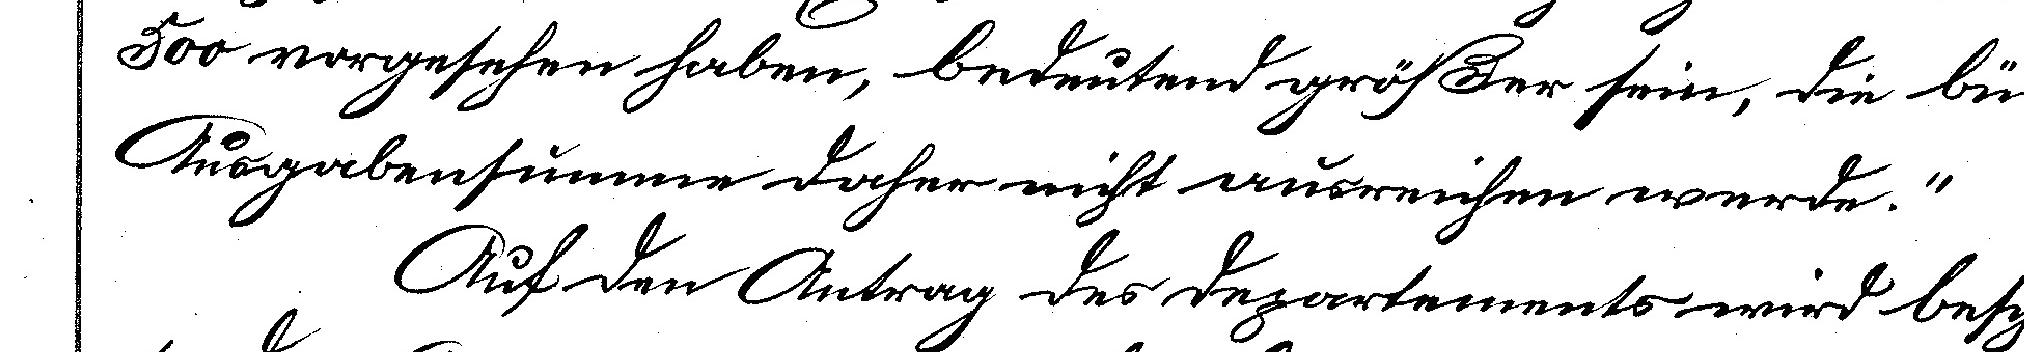 500 vorgesehen haben, bedeutend größer sein, die bü
Ausgabensumme daher nicht ausreichen werde."
Auf den Antrag des Departements wird besch